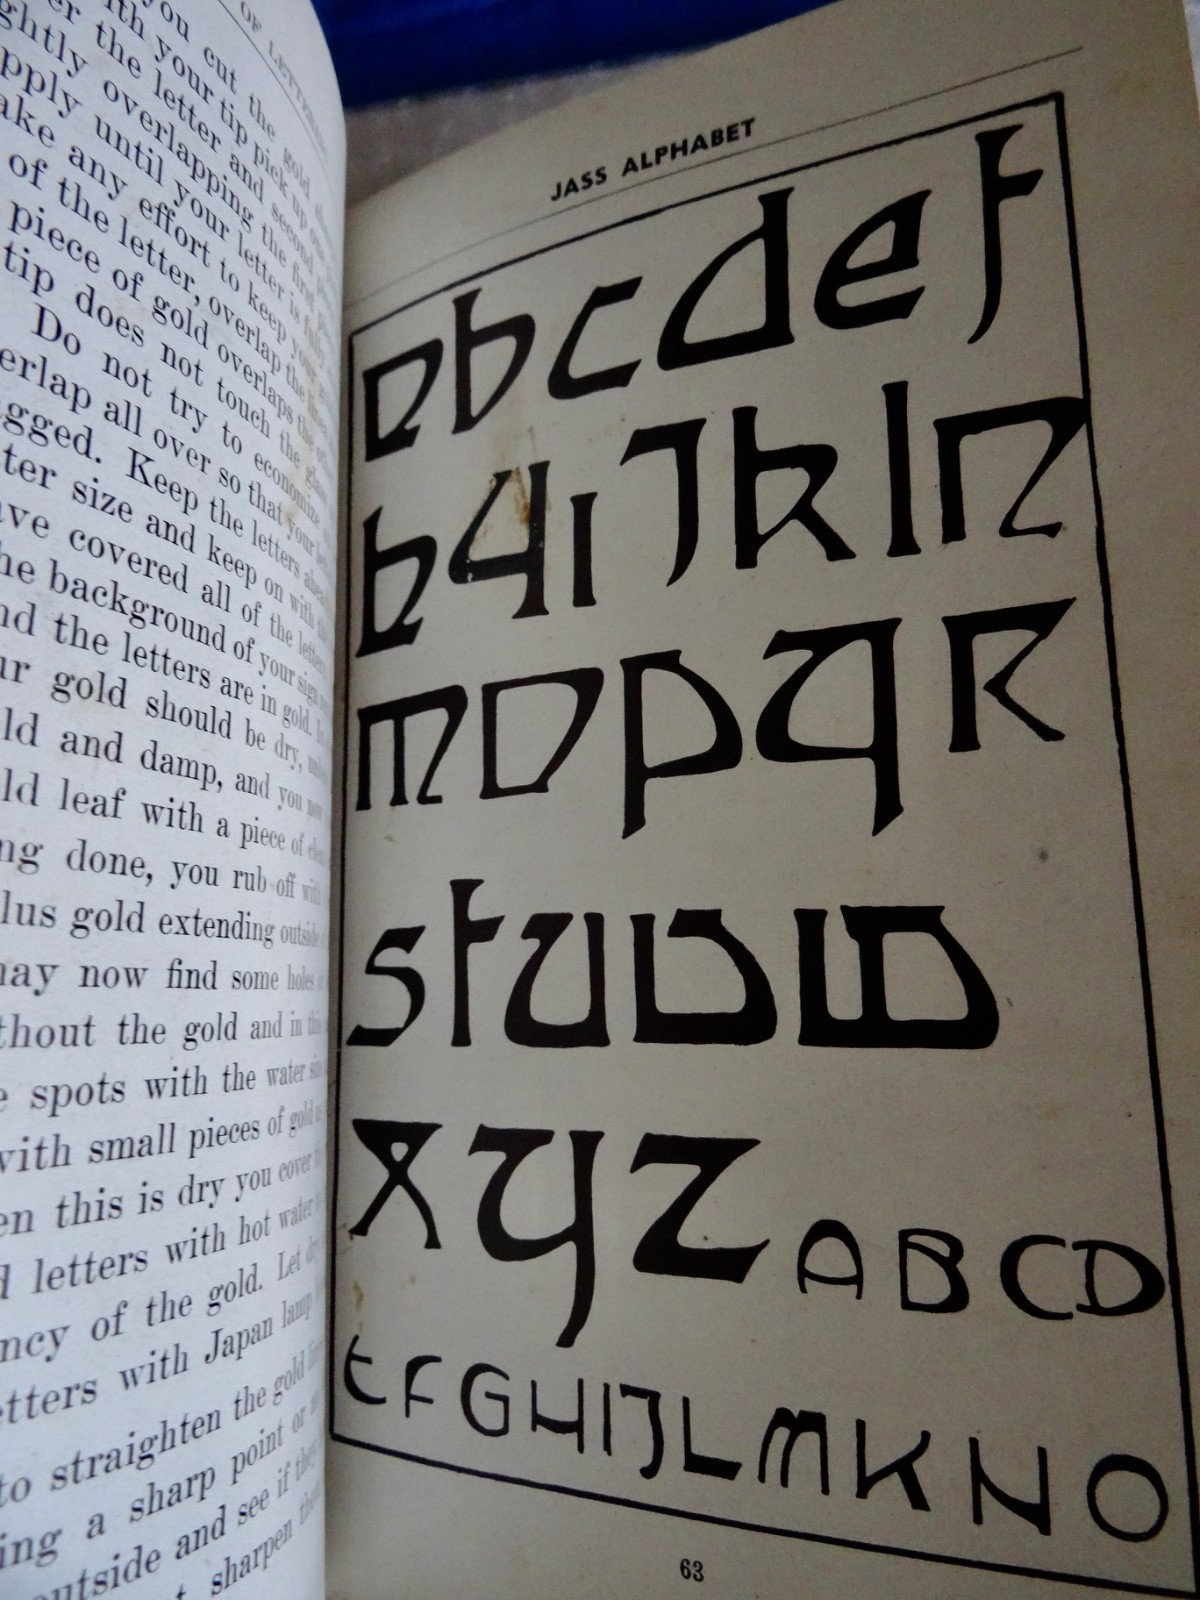 OF LETTERING
you cut the gold
with your tip pick up
the letter and second
overlapping the first
pply until your letter is fully
ake any effort to keep your
of the letter, overlap the
piece of gold overlaps the
tip does not touch the glass
Do not try to economize
erlap all over so that your
gged. Keep the letters
ter size and keep on with
ave covered all of the letters
he background of your sign
nd the letters are in gold.
ur gold should be dry,
ld and damp, and you
ld leaf with a piece of
ng done, you rub off with
lus gold extending outside
may now find some holes
thout the gold and in this
e spots with the water size
with small pieces of gold
en this is dry you cover
d letters with hot water
ncy of the gold. Let dry
etters with Japan lamp
to straighten the gold
ing a sharp point or
outside and see if they
sharpen
JASS ALPHABET
a b c d e f
g h i j k l n
m o p q r
s t u v w
x y z A B C D
E F G H I J L M K N O
63